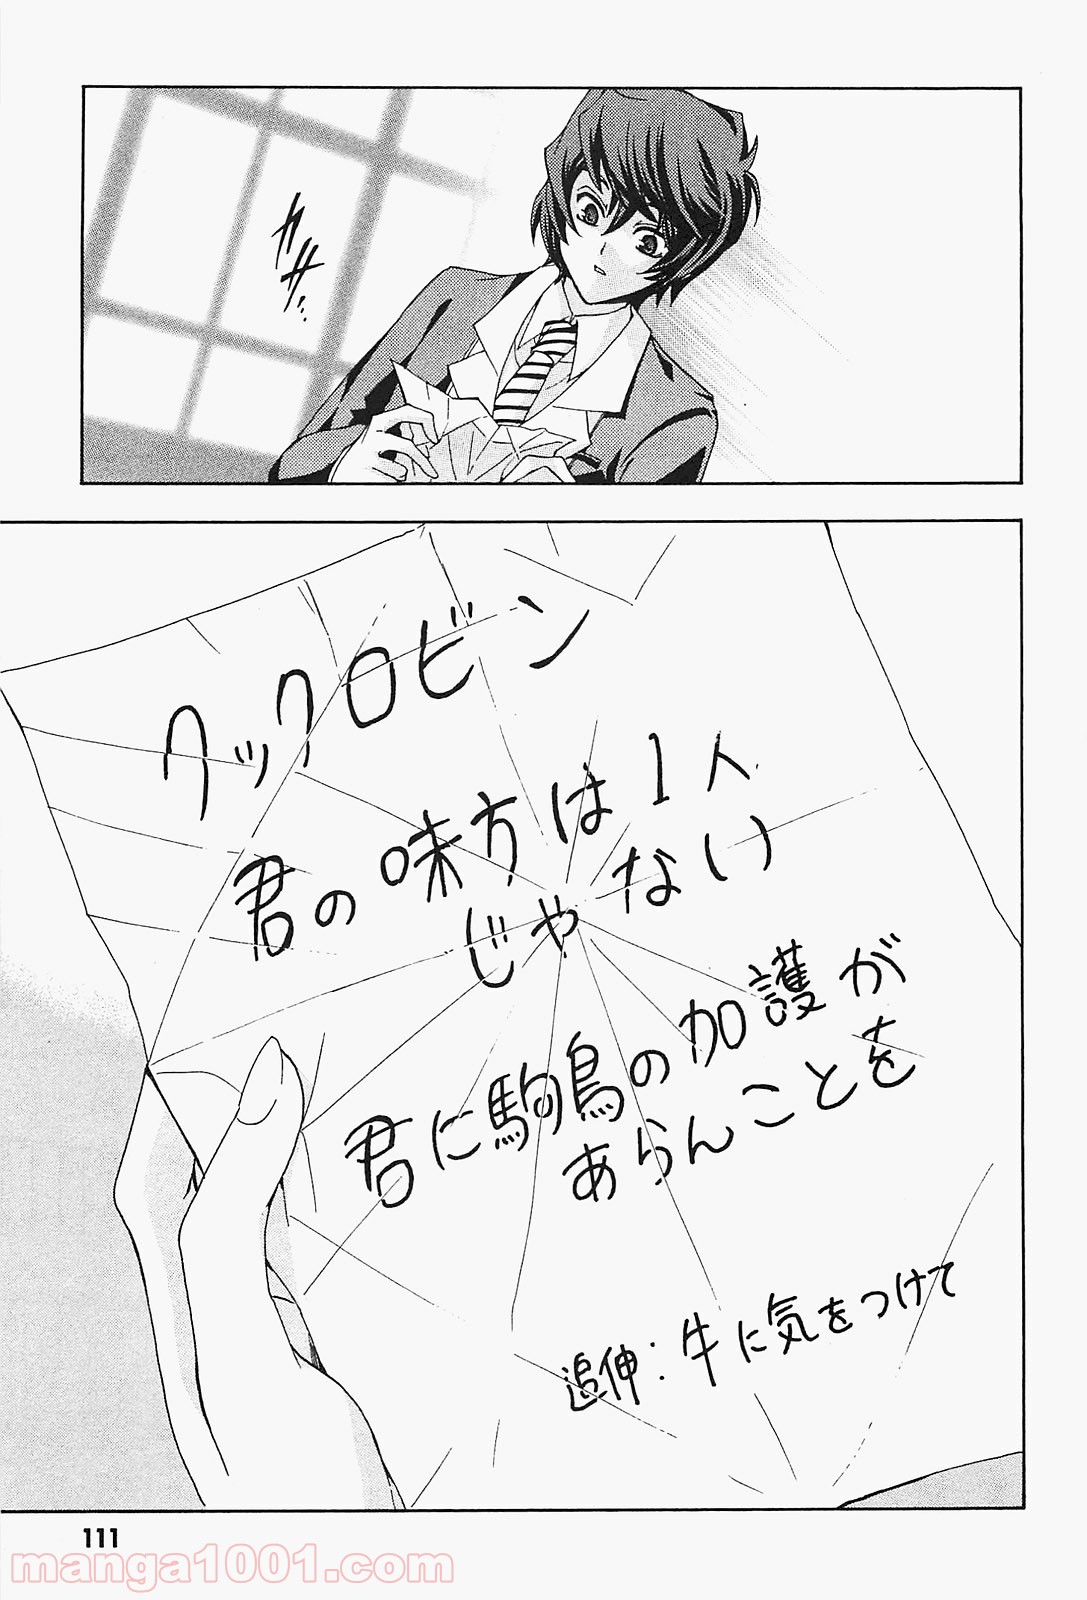 ガサ…
クックロビン
君の味方は1人
じゃない
君に駒鳥の加護が
あらんことを
追伸:牛に気をつけて
111
manga1001.com